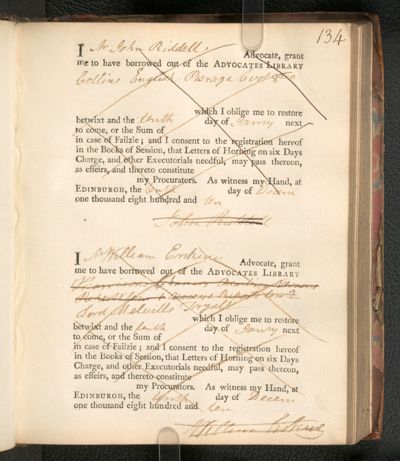 134
I Mr John Riddell. Advocate, grant
me to have borrowed out of the ADVOCATES LIBRARY
Collins English Peerage
which I oblige me to restore
betwixt and the tenth day of Janry next
to come, or the Sum of
in case of Failzie; and I consent to the registration hereof
in the Books of Session, that Letters of Horning on six Days
Charge, and other Executorials needful, may pass thereon,
as effeirs, and thereto constitute
my Procurators. As witness my Hand, at
EDINBURGH, the day of Decem
one thousand eight hundred and ten
John Riddell
I Mr William Erskine Advocate, grant
me to have borrowed out of the ADVOCATES LIBRARY
Lord Melvills
which I oblige me to restore
betwixt and the tenth day of Janry next
to come, or the Sum of
in case of Failzie; and I consent to the registration hereof
in the Books of Session, that Letters of Horning on six Days
Charge, and other Executorials needful, may pass thereon,
as effeirs, and thereto constitute
my Procurators. As witness my Hand, at
EDINBURGH, the day of Decem
one thousand eight hundred and ten
William Erskine